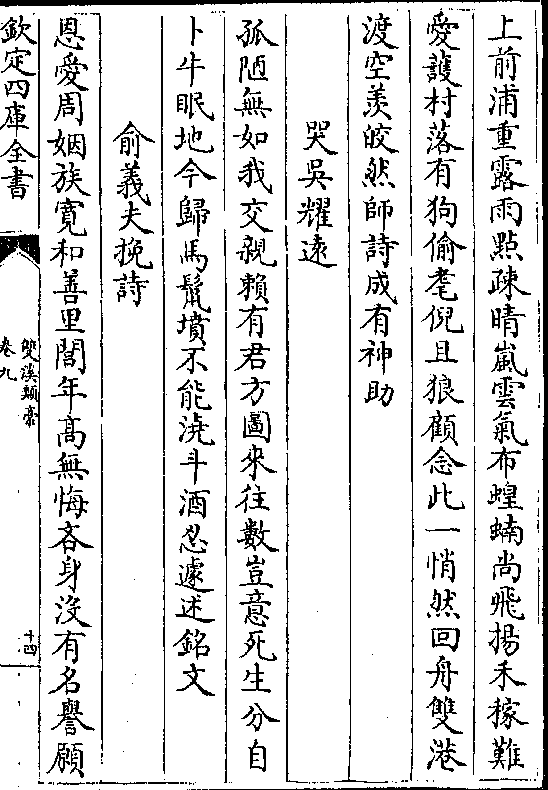 上前浦重露雨點疎晴嵐雲氣布蝗蝻尚飛揚禾稼難
愛護村落有狗偷耄倪且狼顧念此一悄然回舟雙港
渡空羨皎然師詩成有神助
哭吳耀遠
孤陋無如我交親賴有君方圖來往數豈意死生分自
卜牛眠地今歸馬鬛墳不能澆斗酒忍遽述銘文
俞義夫挽詩
恩愛周姻族寛和善里閭年髙無悔吝身沒有名譽願
欽定四庫全書
雙溪類槀
卷九
十四